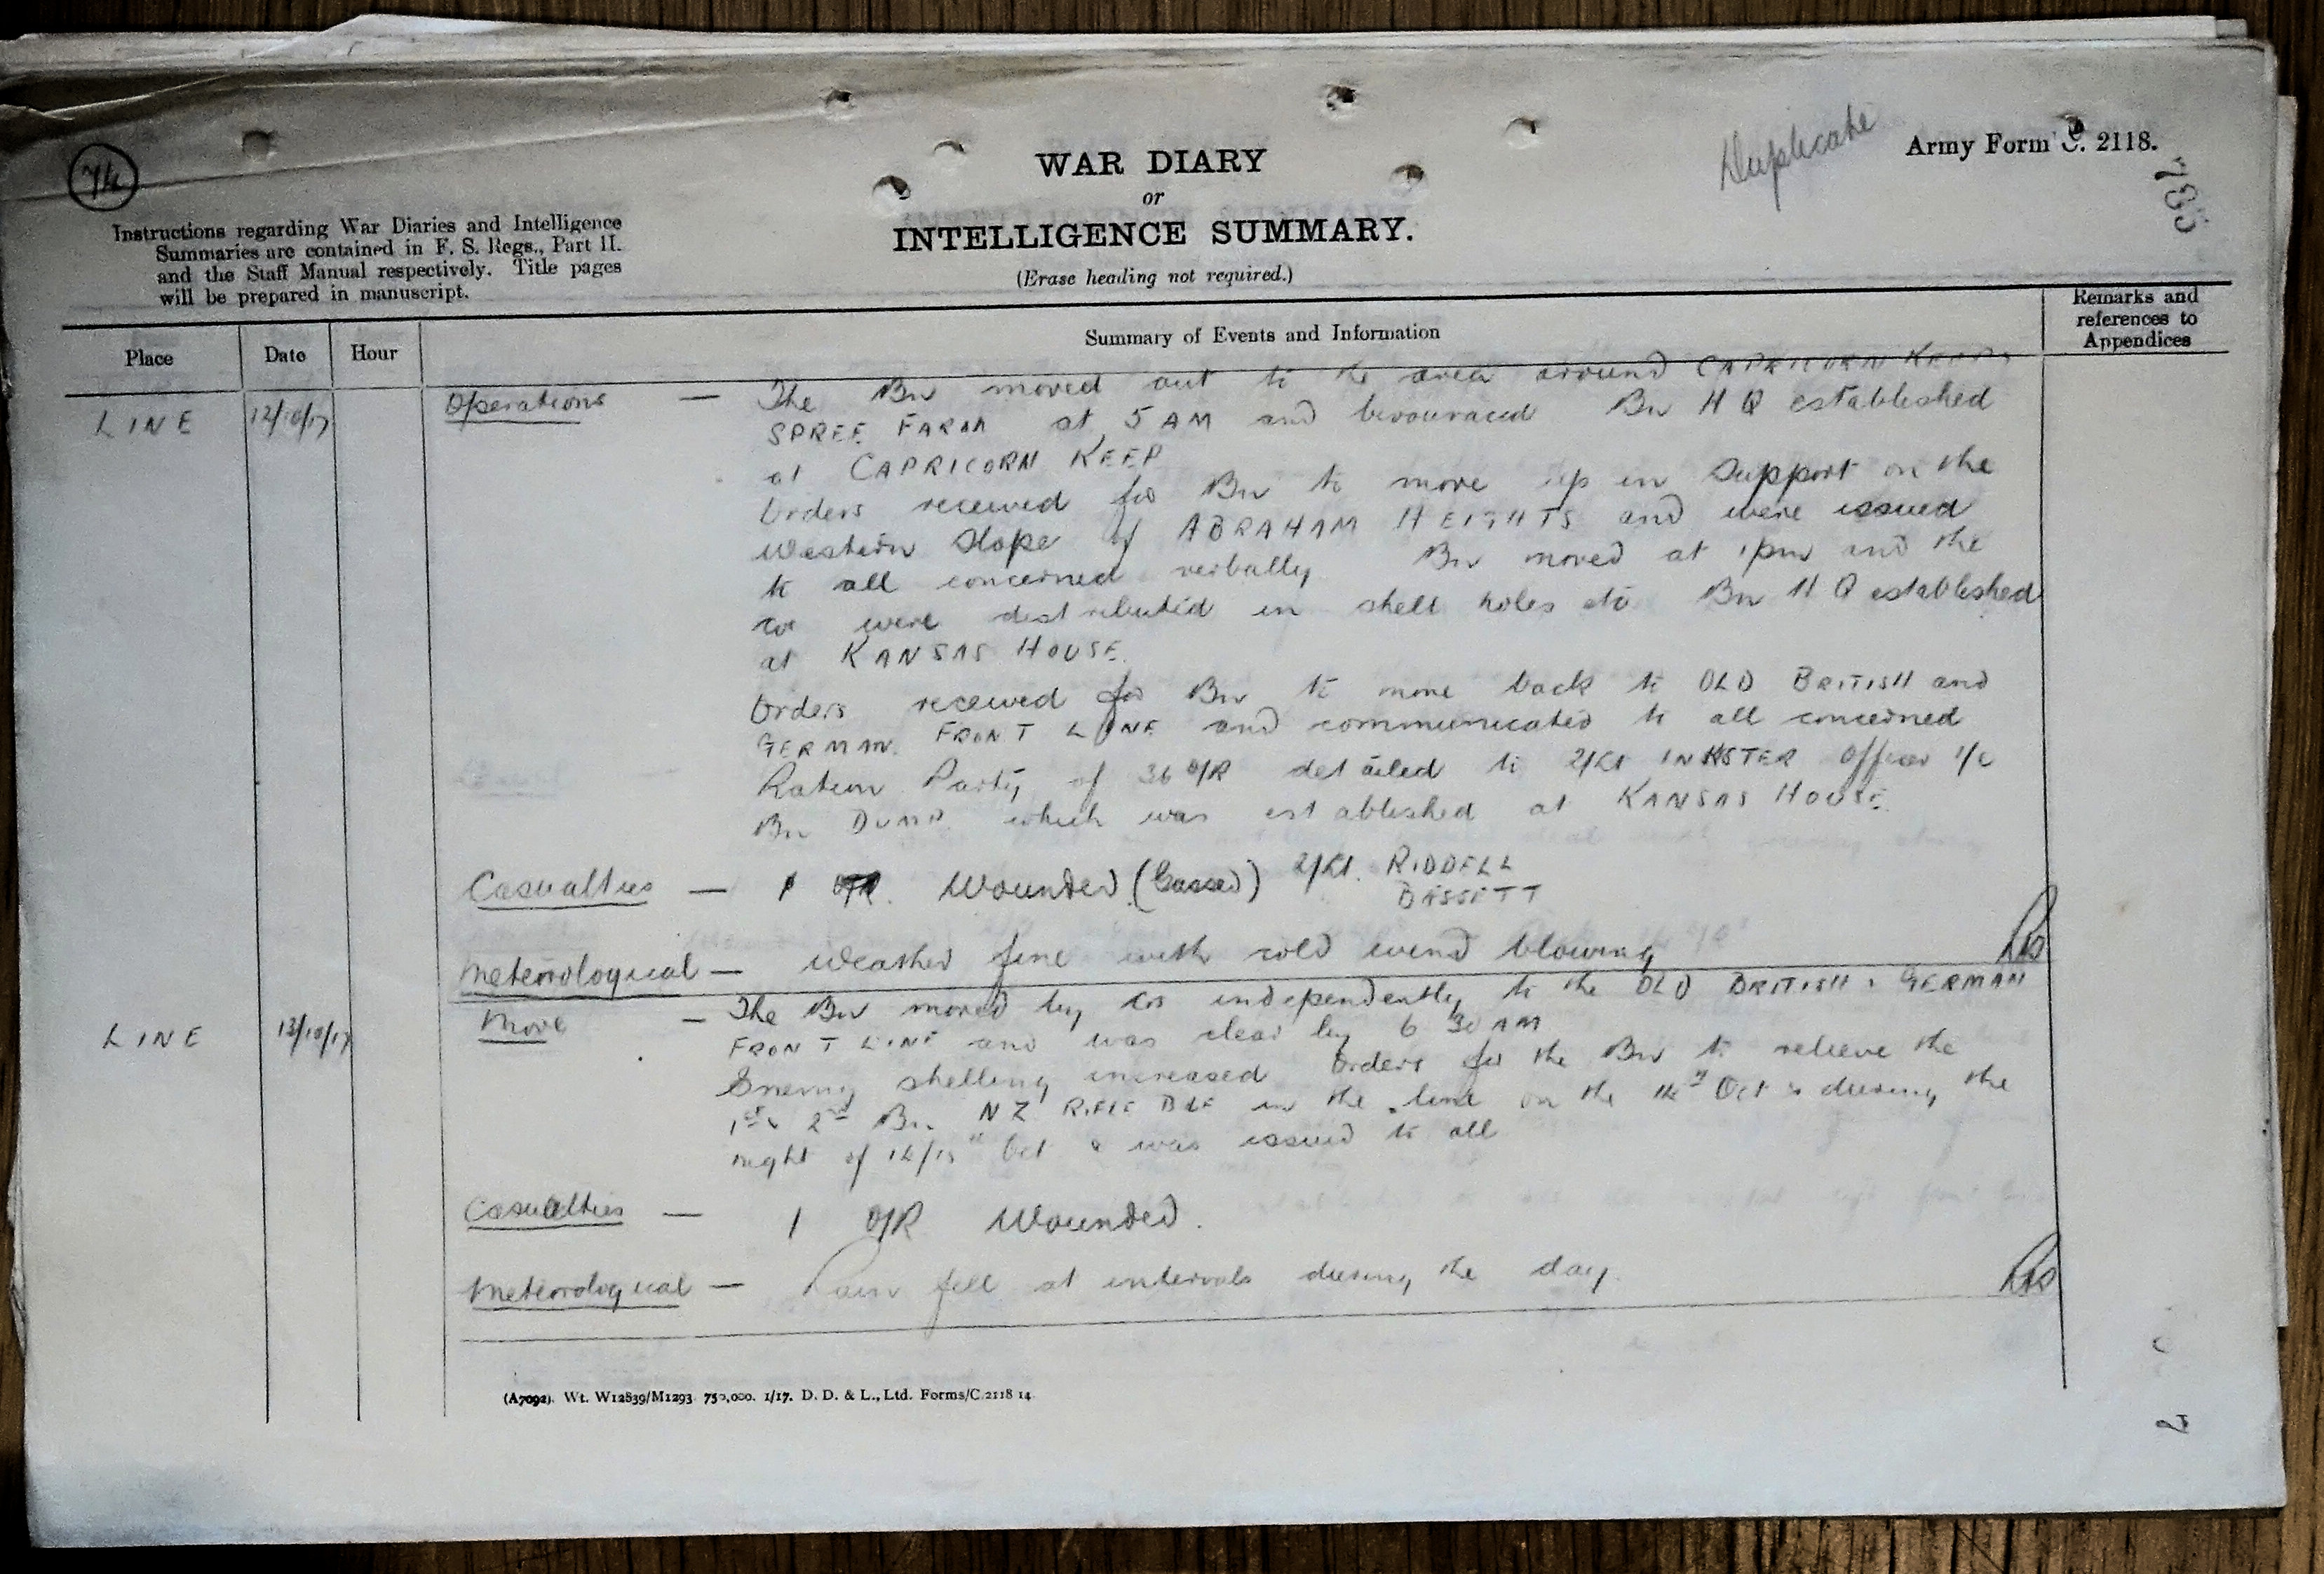 74
Duplicate
Army Form C. 2118.
785
WAR DIARY
or
INTELLIGENCE SUMMARY.
(Erase heading not required.)
Instructions regarding War Diaries and Intelligence
Summaries are contained in F. S. Regs., Part II.
and the Staff Manual respectively. Title pages
will be prepared in manuscript.
Place Date Hour Summary of Events and Information Remarks and references to Appendices
LINE 12/10/17 Operations — The Bn moved out to the area around CAPRICORN KEEP
SPREE FARM at 5 AM and bivouaced Bn HQ established
at CAPRICORN KEEP
Orders received for Bn to move up in support on the
Western Slope of ABRAHAM HEIGHTS and were issued
to all concerned verbally Bn moved at 1pm and the
cos were distributed in shell holes etc Bn HQ established
at KANSAS HOUSE.
Orders received for Bn to move back to OLD BRITISH and
GERMAN FRONT LINE and communicated to all concerned
Ration Party of 36 O/R detailed to 2/Lt INKSTER Officer i/c
Bn DUMP which was established at KANSAS HOUSE.
Casualties — 1 Wounded (Gassed) 2/Lt. RIDDELL
BASSETT
Meteorological — Weather fine with cold wind blowing
LINE 13/10/17 Move — The Bn moved by cos independently to the OLD BRITISH & GERMAN
FRONT LINE and was clear by 6 30 AM
Enemy shelling increased Orders for the Bn to relieve the
1st & 2nd Bn. NZ RIFLE BDE in the line on the 14th Oct & during the
night of 14/15th Oct & was issued to all
Casualties — 1 O/R Wounded.
Meteorological — Rain fell at intervals during the day.
(A7092). Wt. W12839/M1293 750,000. 1/17. D. D. & L., Ltd. Forms/C.2118 14